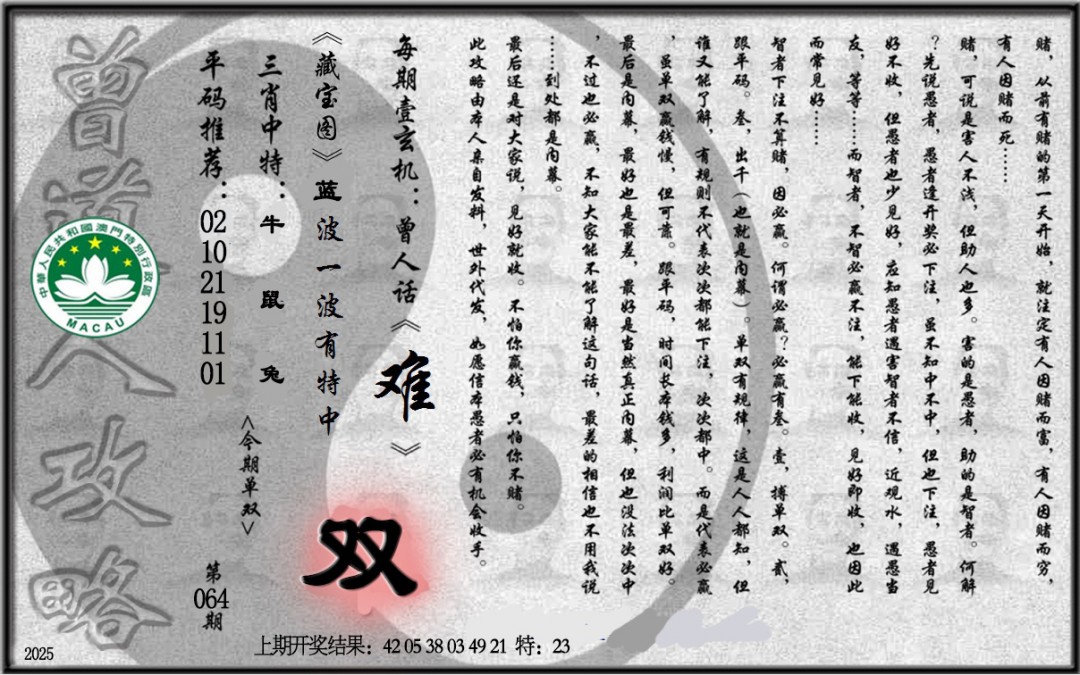 赌，从前有赌的第一天开始，就注定有人因赌而富，有人因赌而穷，
有人因赌而死……
赌，可说是害人不浅，但助人也多。害的是愚者，助的是智者。何解
？先说愚者，愚者逢开奖必下注，虽不知中不中，但也下注，愚者见
好不收，但愚者也少见好，应知愚者遇害智者不信，近观水，遇愚当
友，等等……而智者，不智必赢不注，能下能收，见好即收，也因此
而常见好……
智者下注不算赌，因必赢。何谓必赢？必赢有叁。壹，搏单双。贰，
跟平码。叁，出千（也就是内幕）。单双有规律，这是人人都知，但
谁又能了解，有规则不代表次次都能下注，次次都中。而是代表必赢
，虽单双赢钱慢，但可靠。跟平码，时间长本钱多，利润比单双好。
最后是内幕，最好也是最差，最好是当然真正内幕，但也没法次次中
，不过也必赢，不知大家能不能了解这句话，最差的相信也不用我说
……到处都是内幕。
最后还是对大家说，见好就收。不怕你赢钱，只怕你不赌。
此攻略由本人亲自发料，世外代发，如愿信本愚者必有机会收手。
每期壹玄机：曾人话《难》
《藏宝图》蓝波一波有特中
双
三肖中特：牛 鼠 兔
<今期单双>
平码推荐：02 10 21 19 11 01
第064期
曾道人攻略
中華人民共和國澳門特別行政區
MACAU
上期开奖结果：42 05 38 03 49 21 特：23
2025